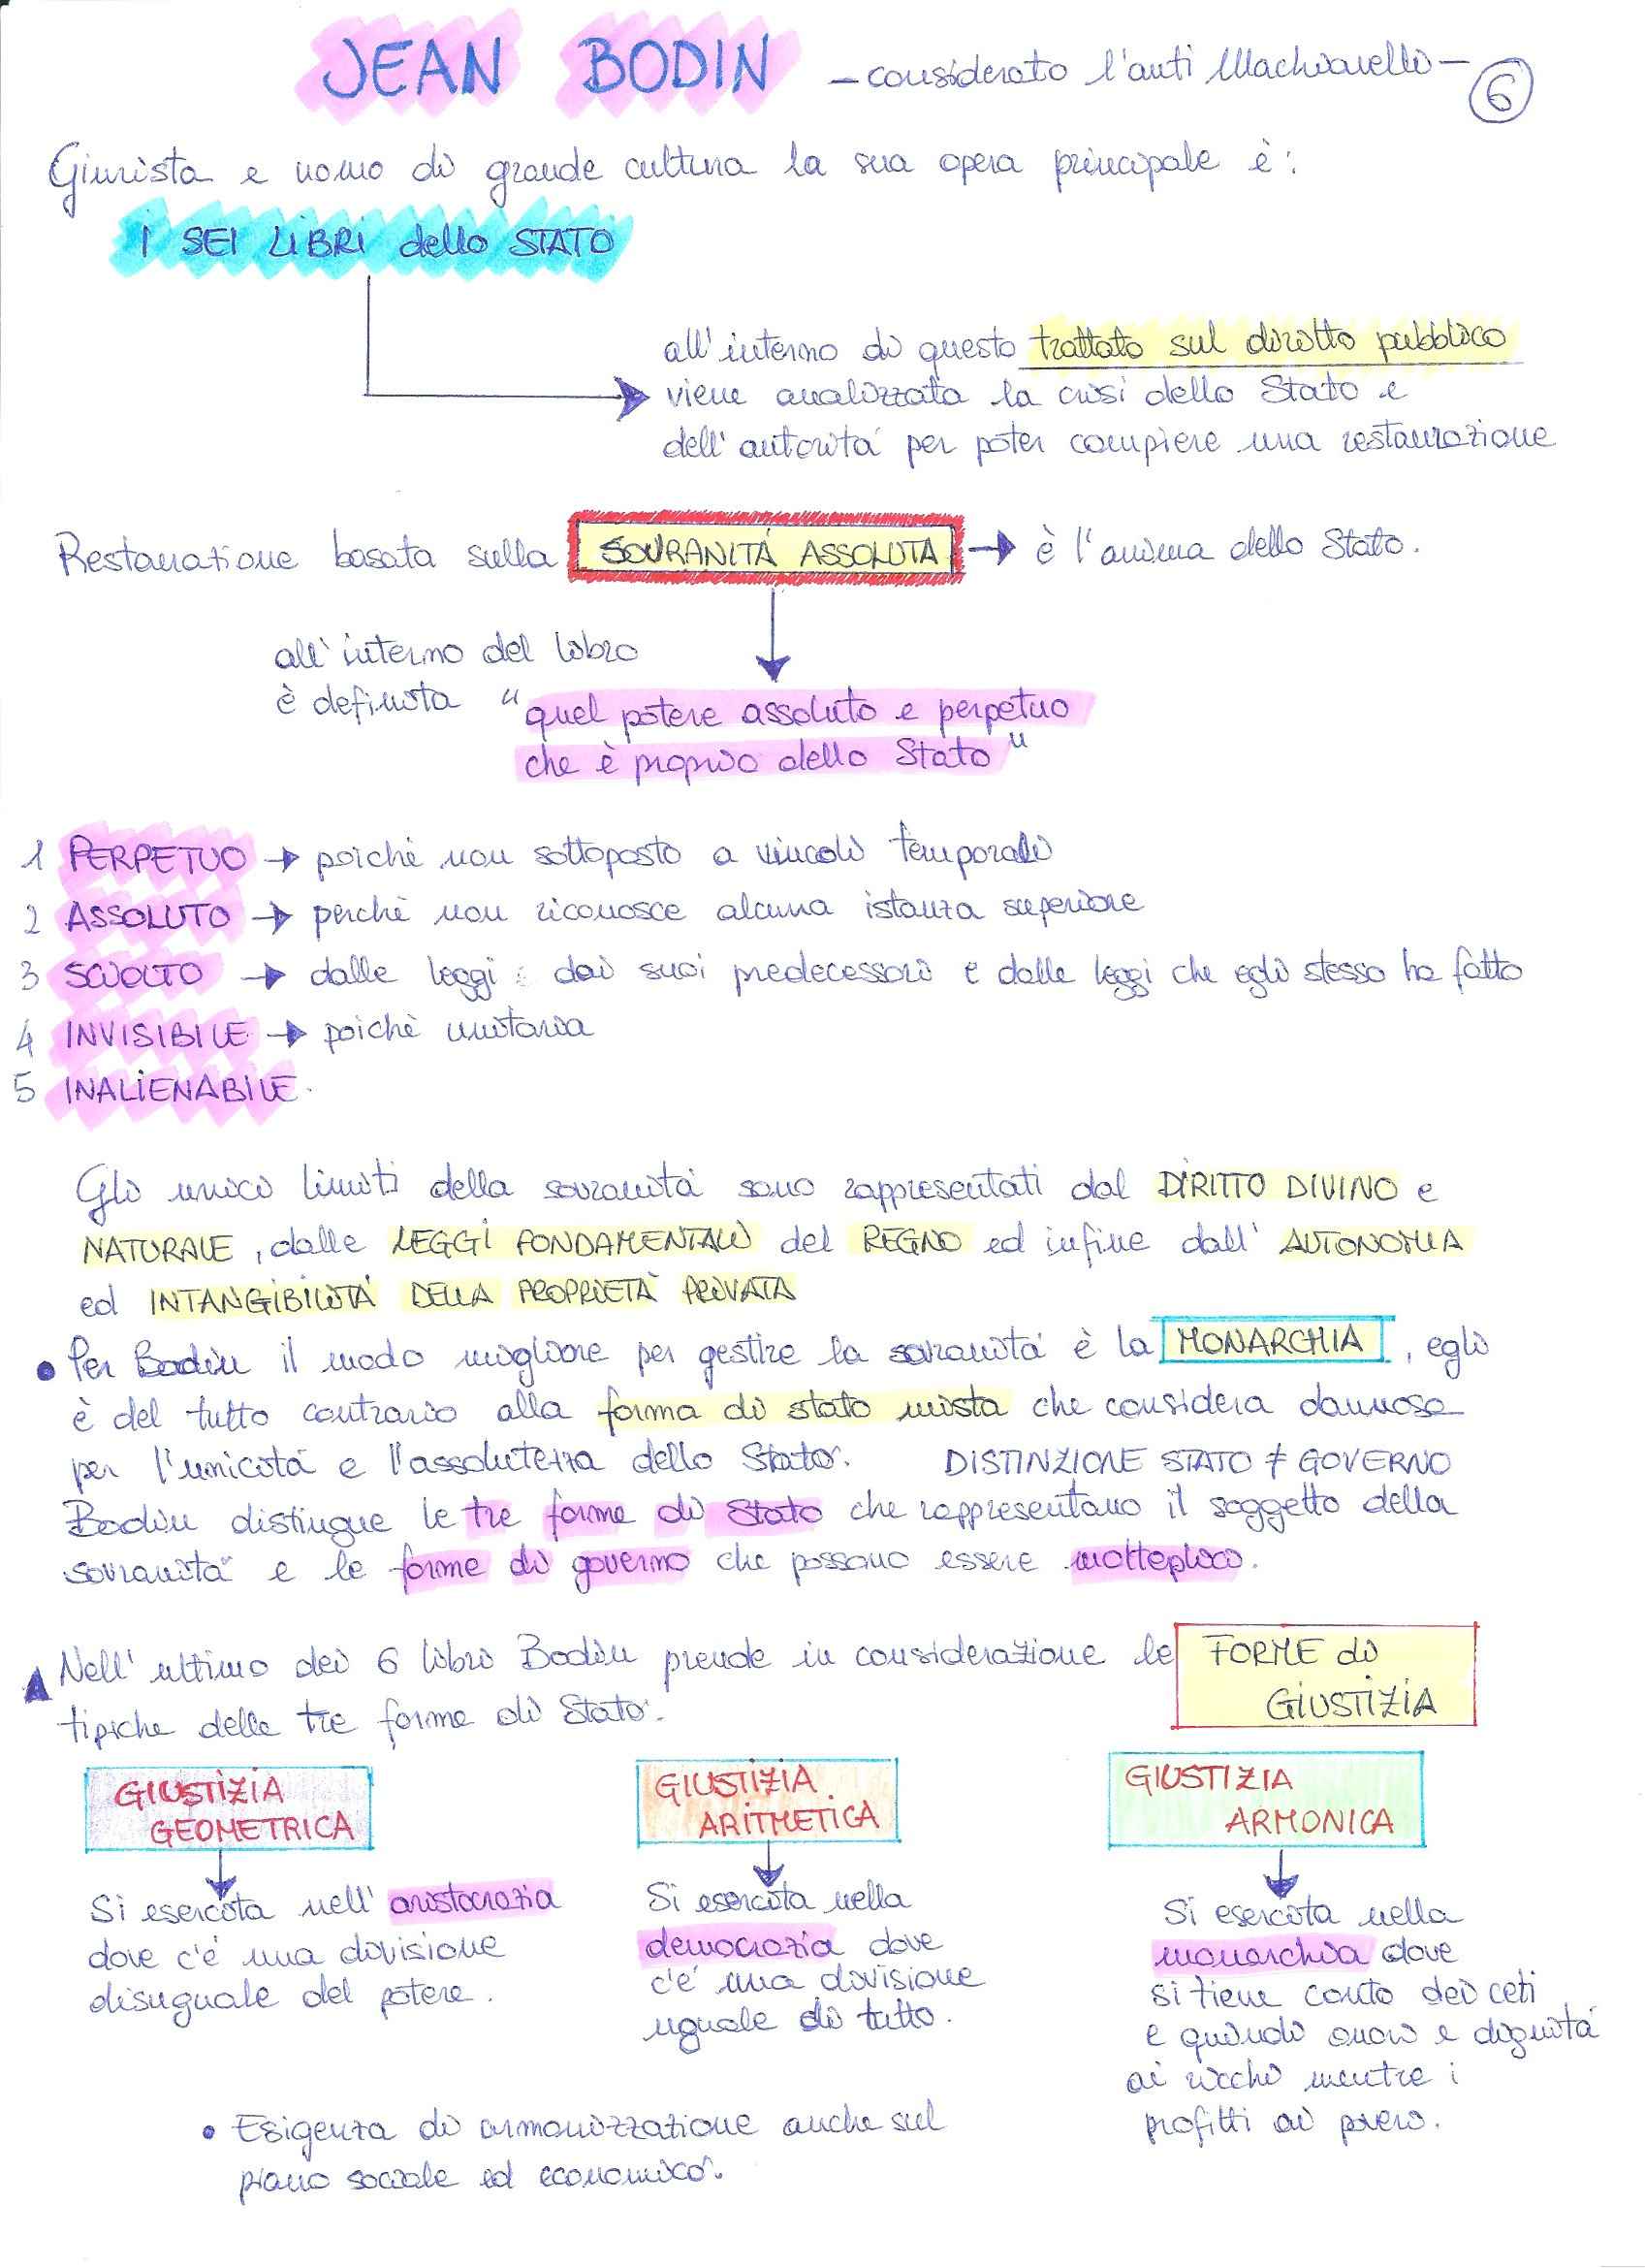 JEAN BODIN – considerato l'anti Machiavelli –
6
Giurista e uomo di grande cultura la sua opera principale è:
I SEI LIBRI dello STATO
all'interno di questo trattato sul diritto pubblico
viene analizzata la crisi dello Stato e
dell'autoritá per poter compiere una restaurazione
Restaurazione basata sulla SOVRANITÁ ASSOLUTA → è l'anima dello Stato.
all'interno del libro
è definita "quel potere assoluto e perpetuo
che è proprio dello Stato"
1 PERPETUO → poichè non sottoposto a vincoli temporali
2 ASSOLUTO → perchè non riconosce alcuna istanza superiore
3 SCIOLTO → dalle leggi : dai suoi predecessori e dalle leggi che egli stesso ha fatto
4 INVISIBILE → poichè unitaria
5 INALIENABILE.
Gli unici limiti della sovranitá sono rappresentati dal DIRITTO DIVINO e
NATURALE, dalle LEGGI FONDAMENTALI del REGNO ed infine dall' AUTONOMIA
ed INTANGIBILITÁ DELLA PROPRIETÀ PRIVATA
• Per Bodin il modo migliore per gestire la sovranitá è la MONARCHIA, egli
è del tutto contrario alla forma di stato mista che considera dannosa
per l'unicitá e l'assolutezza dello Stato. DISTINZIONE STATO ≠ GOVERNO
Bodin distingue le tre forme di Stato che rappresentano il soggetto della
sovranitá e le forme di governo che possono essere molteplici.
▲ Nell'ultimo dei 6 libri Bodin prende in considerazione le FORME di
GIUSTIZIA
tipiche delle tre forme di Stato.
GIUSTIZIA
GEOMETRICA
Si esercita nell'aristocrazia
dove c'é una divisione
disuguale del potere.
GIUSTIZIA
ARITMETICA
Si esercita nella
democrazia dove
c'é una divisione
uguale di tutto.
GIUSTIZIA
ARMONICA
Si esercita nella
monarchia dove
si tiene conto dei ceti
e quindi onori e dignitá
ai ricchi mentre i
profitti ai poveri.
• Esigenza di armonizzazione anche sul
piano sociale ed economico.